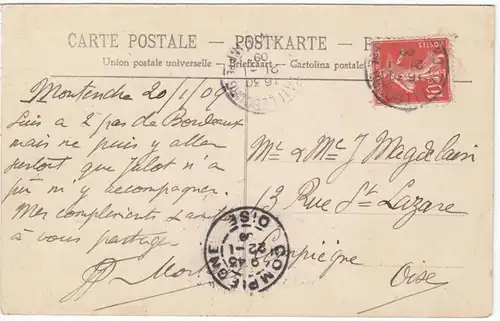 CARTE POSTALE — POSTKARTE — P
Union postale universelle — Briefkaart — Cartolina postale
Montendre 20/1/09
Suis à 2 pas de Bordeaux
mais ne puis y aller
surtout que n'a
pu m'y accompagner.
Mes compliments
à vous partager
Mr & Me J Magdelain
13 Rue St Lazare
Compiègne
Oise
COMPIEGNE
OISE
9 45
22 - 1
09
16 30
21 - 1
09
POSTES
10